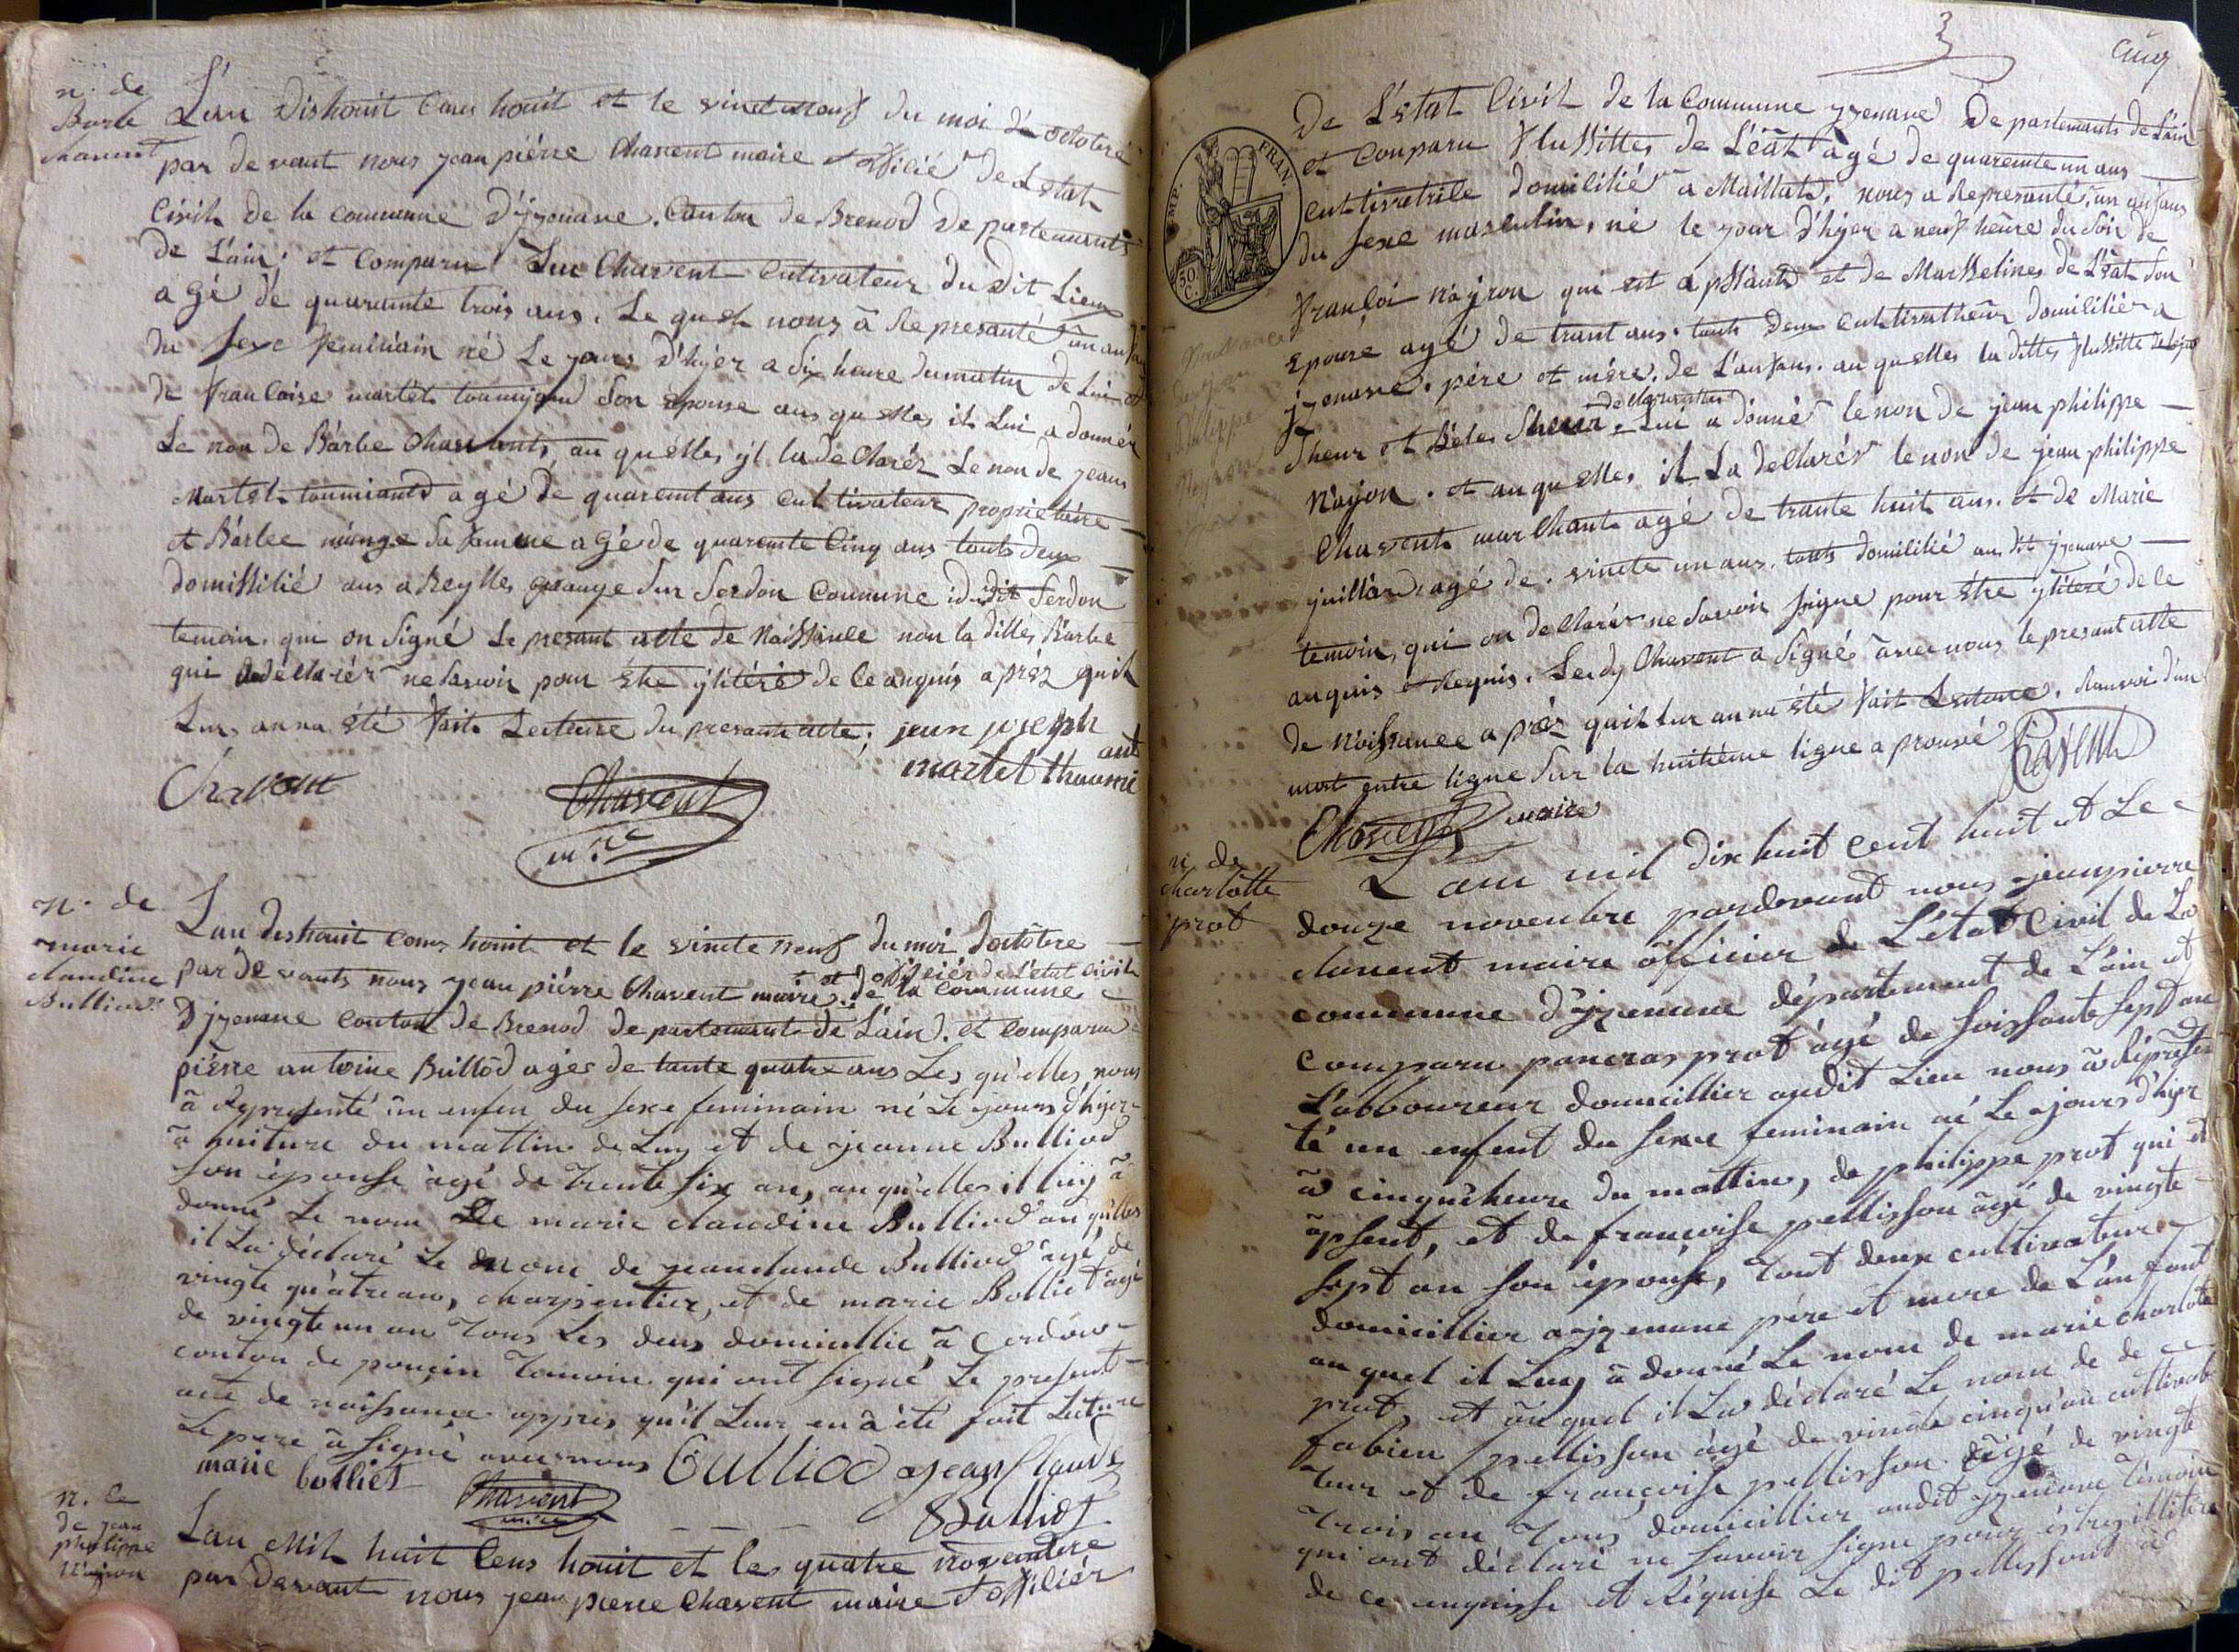 n. de
Barbe
chavent
L'an Dishouit Cens houit et le vinct neuf du moi d'octobre
par de vant nous jean piérre Chavent maire et offilié de L'etat
Civil de la commune D'jzenave. Canton de Brenod De partements
de L'ain; et Comparu Luc Chavent Cutivateur du dit Lieux
agé dé quaramte trois ans. Le quel nous à Represanté un anfan
du sexe feminain né Le jours d'hÿer a dix heure du matin de Lui et
de franCoise martét toumijand son epouse aus qu elles il Lui a donnér
Le non de Bárbe Chavants, au qu elles ÿl la de Clarér Le non de jean
Martet toumiand agé de quaremt ans Cultivateur proprietáire
et Bárbe minge sa famme agé de quaremte Cinq ans touts deux
domissilié aus a Reylles grange sur Serdon Commune du dit Serdon
temoin, qui on signé Le presant acte de Naissance non la dittes Barbe
qui a déclarér ne savoir pour étre ÿlitéré de Ce anquis aprés quil
Lur an na été fait Lecture du presant acte; jean joseph
martet thoumi ant
Chavent
Chavent
m.re
n. de
marie
claudine
Bulliod
L'an dishouit Cens houit et le vincte neuf du moi d'octobre
par de vants nous jean piérre Chavent maire et d'offisiér de L'etat civil
de la Commune
D'jzenave Conton de Brenod de partement de L'ain. et Comparu
piérre antoine Bulliod ager de tante quatre ans Les qu'elles nous
à Representé un enfen du sexe feminain né Le jours d'hÿer
à huiture du mattin de Luy et de jeanne Bulliod
son épouse àgé de trente six an, au qu'elles il luy à
donné Le nom De marie claudine Bulliod au qu'elles
il La déclaré Le nom de jeanclaude Bulliod àgé de
vingte quâtre an, charpentier, et de marie Bolliet àgé
de vingte un an Tous Les deus domicillie à Cerdon
conton de ponçin Temoin qui ont signé Le present
acte de naissance appres qu'il Leur en à été fait Lecture
Le pere à signé avec nous Bulliod jean Claude
Bulliod
marie bolliet
Chavent
maire
n. Ce
de jean
philippe
Neÿron
L'an Mil huit Cens houit et les quatre novembre
par devant nous jean pierre Chavent maire et offiliér
3
Cinq
De L'etat Civil de la Commune jzenave De partements de L'ain
et Comparu
de L'éat àgé de quaremte un ans
cultivatrile domililié a Maillat, nous a Represanté un anfans
du sexe masculin, né le jour d'hÿer a neuf heure du soir de
franCoi Náyron qui est apsant et de Marselines de L'éat son
Epouse agé de trant ans. touts deux Cultivatheur domililiér a
jzenave. pére et mére. de L'anfans. au qu elles la dittes
de L'éat
Lui a donné le non de jean philippe
Náyon. et au qu elles il La declarér le non de jean philippe
Chavent marChant agé de trante huit ans. et de Marie
juilliard agé de. vincte un ans. touts domililié au dit jzenave
temoin, qui on declarér ne Savoir Signe pour étre ÿlitéré de Ce
anquis et Requis. Le dy Chavent a Signé avec nous le presant acte
de Naissance aprés quil lur an na été fait Lecture. Ranvoi d'un
mot entre ligne sur la huitiéme ligne aprouvé
Chavent
Chavent maire
FRAN.
50
C.
n. de
charlotte
prot
L'an mil dix huit cent huit et Le
douze novembre pardevant nous jeanpierre
chavent maire officier de L'état Civil de La
commune d'jzenave département de L'ain et
comparu pancras prot âgé de soissante sept an
L'abboureur domicillier audit Lieu nous à Répresen
té un enfent du sexe feminain né Le jours d'hÿer
à cinque heure du mattin, de philippe prot qui est
apsent, et de françoise pellisson âgé de vingte
sept an son épouse, Tout deux cultivateur
domicillier a jzenave pére et mere de L'anfant
au quel il Luy à donné Le nom de marie charlotte
prot, et au quel il La déclaré Le nom de de
fabien pellisson âgé de vincte cinqu'an cultivat
teur et de françoise pellisson âgé de vingte
Trois an Tous domicillier audit jzenave Témoin
qui ont déclaré ne savoir signe pour étres illitéré
de ce enquisse et Réquise Le dit pellissont à